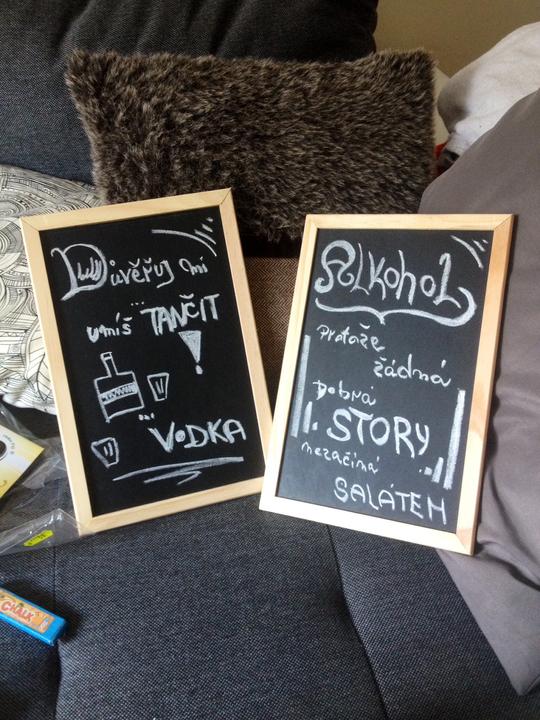 Důvěřuj mi
... umíš TANČIT!
... VODKA
Alkohol
Protože
žádná
Dobrá
STORY
nezačíná
SALÁTEM
CHALK